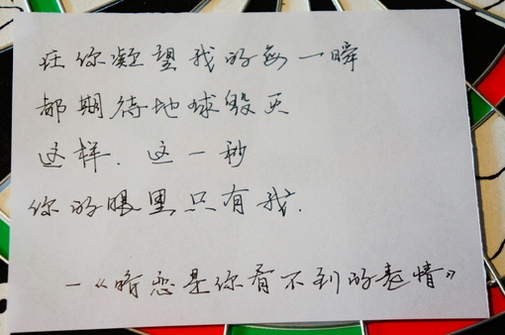 在你凝望我的每一瞬
都期待地球毁灭
这样.这一秒
你的眼里只有我.
—《暗恋是你看不到的表情》